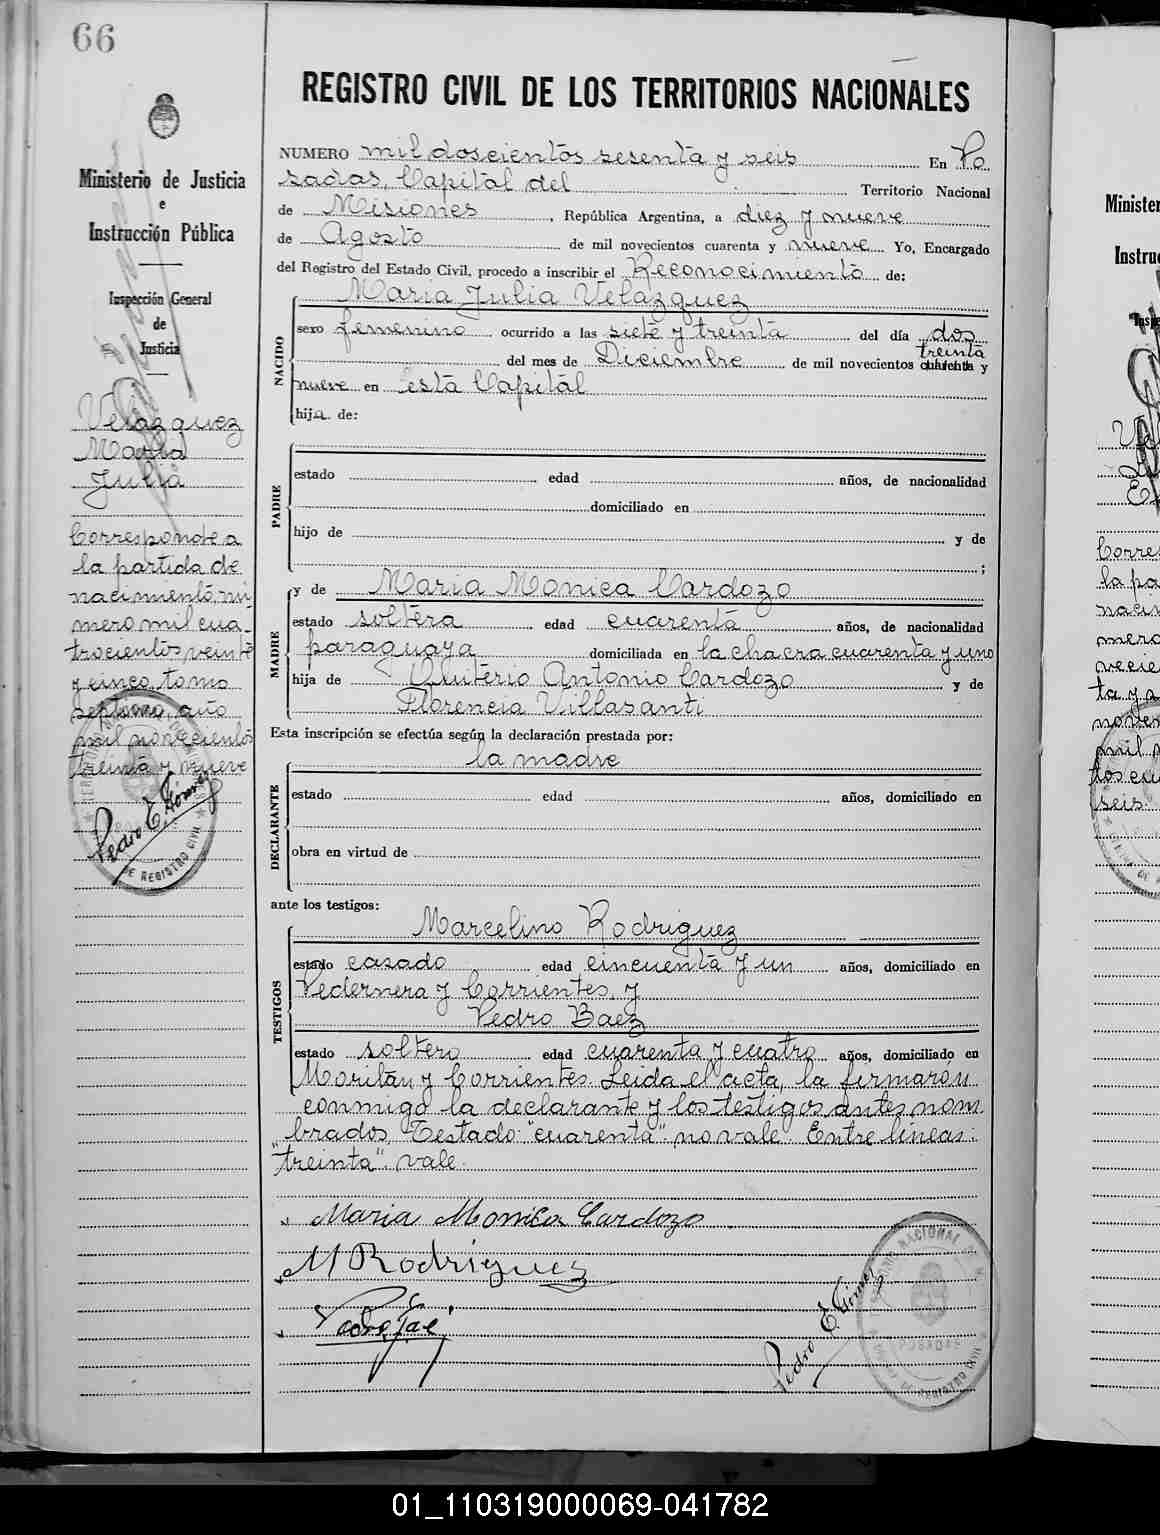 66
Ministerio de Justicia
e
Instrucción Pública
Inspección General
de
Justicia
Velazquez
Maria
Julia
Corresponde a
la partida de
nacimiento nú
mero mil cua-
trocientos veinte
y cinco, tomo
septimo, año
mil novecientos
treinta y nueve
Pedro E. Gómez
DE REGISTRO CIVIL
REGISTRO CIVIL DE LOS TERRITORIOS NACIONALES
NUMERO mil doscientos sesenta y seis En Po
sadas, Capital del Territorio Nacional
de Misiones, República Argentina, a diez y nueve
de Agosto de mil novecientos cuarenta y nueve Yo, Encargado
del Registro del Estado Civil, procedo a inscribir el Reconocimiento de:
NACIDO
Maria Julia Velazquez
sexo femenino ocurrido a las siete y treinta del día dos
treinta
del mes de Diciembre de mil novecientos cuarenta y
nueve en esta Capital
hija de:
PADRE
estado edad años, de nacionalidad
domiciliado en
hijo de y de
;
MADRE
y de Maria Monica Cardozo
estado soltera edad cuarenta años, de nacionalidad
paraguaya domiciliada en la chacra cuarenta y uno
hija de Quiterio Antonio Cardozo y de
Florencia Villasanti
Esta inscripción se efectúa según la declaración prestada por:
DECLARANTE
la madre
estado edad años, domiciliado en
obra en virtud de
ante los testigos:
TESTIGOS
Marcelino Rodriguez
estado casado edad cincuenta y un años, domiciliado en
Pedernera y Corrientes, y
Pedro Baez
estado soltero edad cuarenta y cuatro años, domiciliado en
Moritan y Corrientes. Leida el acta, la firmarón
conmigo la declarante y los testigos antes nom
brados. Testado: "cuarenta". no vale. Entre lineas:
"treinta". vale.
Maria Monica Cardozo
M Rodriguez
Pedro E. Gómez
TERRITORIO NACIONAL
POSADAS
DE REGISTRO CIVIL
Minister
Instru
Corres
la pa
nacim
mero
vecie
ta y
noven
mil
tos cu
seis.
01_110319000069-041782